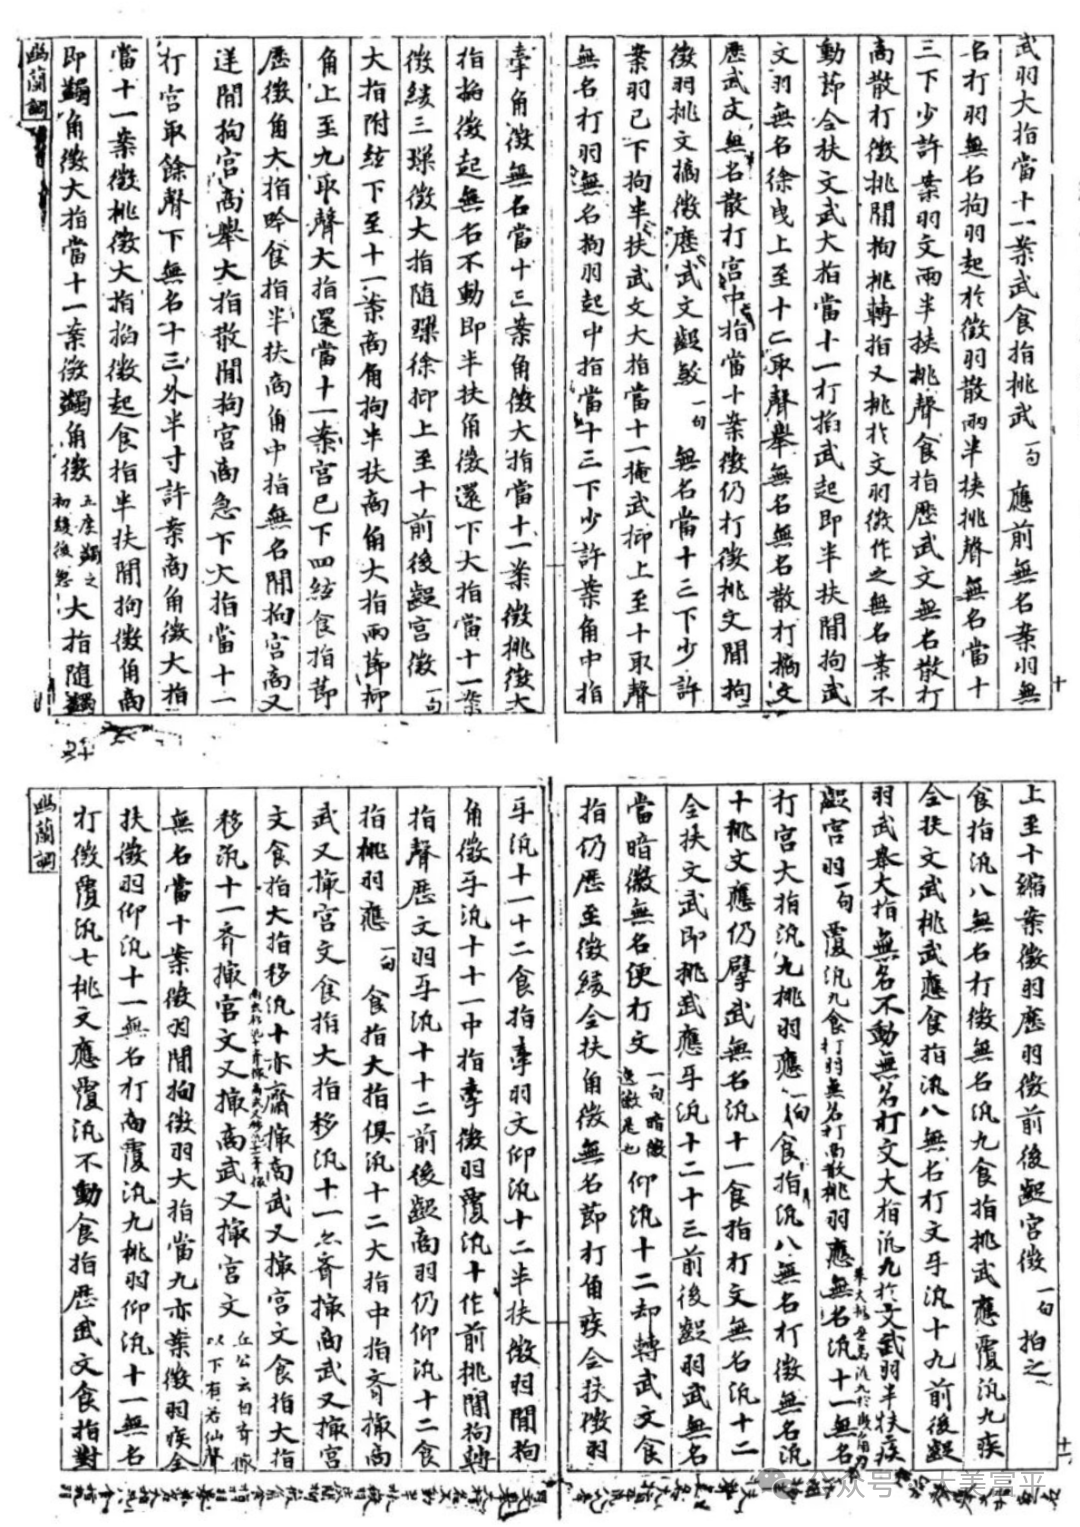 武羽大指當十一案武食指挑武一句 應前無名案羽無
名打羽無名拘羽起於徵羽散兩半挾挑聲無名當十
三下少許案羽文兩半挾挑聲食指歷武文無名散打
商散打徵挑間拘挑轉指又挑於文羽徵作之無名案不
動節全扶文武大指當十一打搯武起即半扶間拘武
文羽無名徐曳上至十二取聲舉無名無名散打摘文
歷武文無名散打宮中指當十案徵仍打徵挑文間拘
徵羽挑文摘徵歷武文齪敏一句 無名當十三下少許
案羽已下拘半扶武文大指當十一掩武抑上至十取聲
無名打羽無名拘羽起中指當十三下少許案角中指
牽角徵無名當十三案角徵大指當十一案徵挑徵大
指搯徵起無名不動即半扶角徵還下大指當十一案
徵緩三𤨏徵大指隨𤨏徐抑上至十前後齪宮徵一句
大指附絃下至十一案商角拘半扶商角大指兩節抑
角上至九取聲大指還當十一案宮已下四絃食指節
歷徵角大指吟食指半扶商角中指無名間拘宮商又
送間拘宮商舉大指散間拘宮商急下大指當十一
打宮取餘聲下無名十三外半寸許案商角徵大指
當十一案徵挑徵大指搯徵起食指半扶間拘徵角商
即蠲角徵大指當十一案徵蠲角徵五度蠲之初緩後急大指隨蠲
幽蘭調
十
上至十縮案徵羽歷羽徵前後齪宮徵一句 拍之
食指汎八無名打徵無名汎九食指挑武應覆汎九疾
全扶文武挑武應食指汎八無名打文牙汎十九前後齪
羽武舉大指無名不動無名打文大指汎九於文武羽半扶疾
齪宮羽一句 覆汎九食打羽無名打商散挑羽應無名汎十一無名
打宮大指汎九挑羽應一句 食指汎八無名打徵無名汎
十挑文應仍擘武無名汎十一食指打文無名汎十二
全扶文武即挑武應牙汎十二十三前後齪羽武無名
當暗徽無名便打文一句暗徽 仰汎十二却轉武文食
指仍歷至徵緩全扶角徵無名節打角疾全扶徵羽
牙汎十一十二食指牽羽文仰汎十二半扶徵羽間拘
角徵牙汎十十一中指牽徵羽覆汎十作前挑間拘轉
指聲歷文羽牙汎十十二前後齪商羽仍仰汎十二食
指挑羽應一句 食指大指俱汎十二大指中指齊撮商
武又撮宮文食指大指移汎十一亦齊撮商武又撮宮
文食指大指移汎十亦齊撮商武又撮宮文食指大指
移汎十一齊撮宮文又撮商武又撮宮文丘公云向齊撮以下有若仙聲
無名當十案徵羽間拘徵羽大指當九亦案徵羽疾全
扶徵羽仰汎十一無名打商覆汎九挑羽仰汎十一無名
打徵覆汎七挑文應覆汎不動食指歷武文食指對
幽蘭調
十一
公众号·大美富平